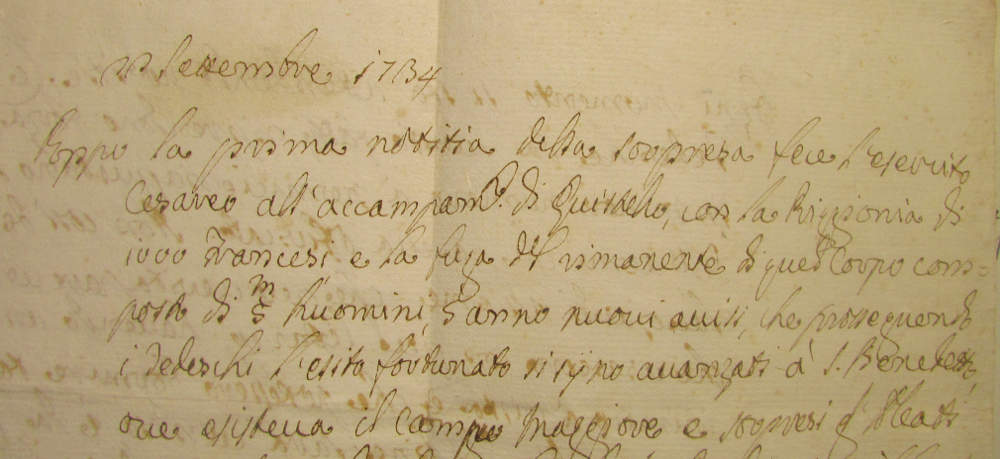 22 Settembre 1734
Doppo la prima notitia della sorpresa fece l'esercito
Cesareo all'accampam.to di Quistello, con la Priggionia di
1000 Francesi e la fuga del rimanente di quel Corpo com=
posto di 5 m huomini, s'anno nuovi avvisi, che proseguendo
i Tedeschi l'esito fortunato si sijno avanzati à S. Benedetto,
ove esisteva il Campo Maggiore e sopresi gl'